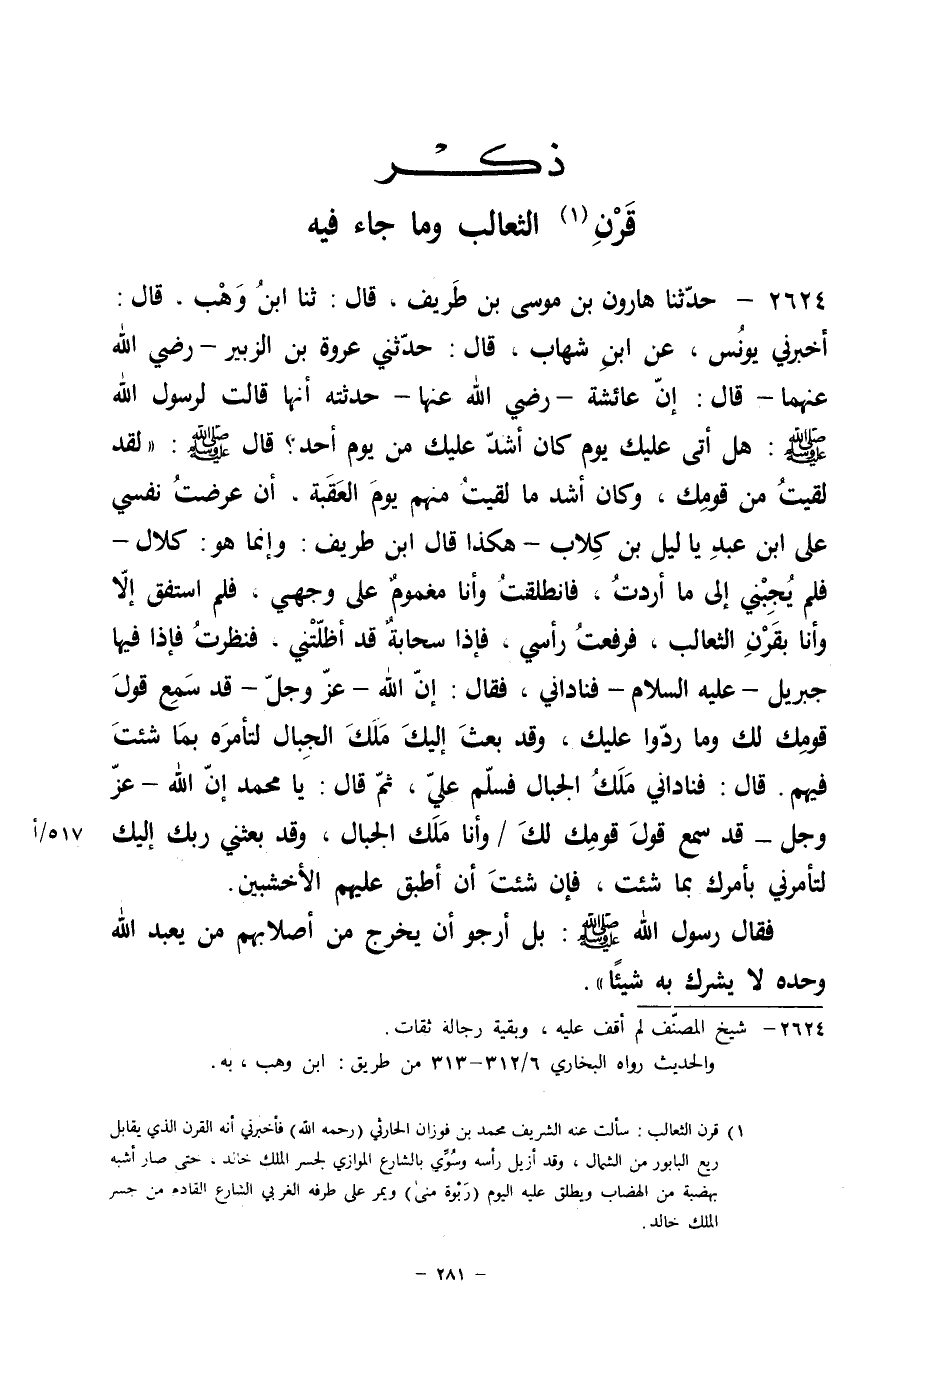 ذكـــر
قَرْنِ (١) الثعالب وما جاء فيه
٢٦٢٤ – حدّثنا هارون بن موسى بن طَريف ، قال : ثنا ابنُ وَهْب . قال :
أخبرني يونُس ، عن ابنِ شهاب ، قال : حدّثني عروة بن الزبير – رضي الله
عنهما – قال : إنّ عائشة – رضي الله عنها – حدثته أنها قالت لرسول الله
ﷺ : هل أتى عليك يوم كان أشدّ عليك من يوم أحد؟ قال ﷺ : « لقد
لقيتُ من قومِك ، وكان أشد ما لقيتُ منهم يومَ العَقَبة . أن عرضتُ نفسي
على ابن عبدِ يا ليل بن كِلاب – هكذا قال ابن طريف : وإنما هو : كلال –
فلم يُجِبْني إلى ما أردتُ ، فانطلقتُ وأنا مغمومٌ على وجهي ، فلم استفق إلّا
وأنا بقَرْنِ الثعالب ، فرفعتُ رأسي ، فإذا سحابةٌ قد أظلّتْني . فنظرتُ فإذا فيها
جبريل – عليه السلام – فناداني ، فقال : إنّ الله – عزّ وجلّ – قد سَمِع قولَ
قومِك لك وما ردّوا عليك ، وقد بعثَ إليكَ مَلَكَ الجبال لتأمرَه بمَا شئتَ
فيهم . قال : فناداني مَلَكُ الجبال فسلّم عليّ ، ثمّ قال : يا محمد إنّ الله – عزّ
وجل – قد سمع قولَ قومِك لكَ / وأنا مَلَك الجبال ، وقد بعثني ربك إليك ٥١٧/أ
لتأمرني بأمرك بما شئت ، فإن شئتَ أن أطبق عليهم الأخشبين.
فقال رسول الله ﷺ : بل أرجو أن يخرج من أصلابهم من يعبد الله
وحده لا يشرك به شيئًا» .
٢٦٢٤– شيخ المصنّف لم أقف عليه ، وبقية رجالة ثقات.
والحديث رواه البخاري ٣١٢/٦–٣١٣ من طريق : ابن وهب ، به.
١) قرن الثعالب : سألت عنه الشريف محمد بن فوزان الحارثي (رحمه الله) فأخبرني أنه القرن الذي يقابل
ريع البابور من الشمال ، وقد أزيل رأسه وسُوِّي بالشارع الموازي لجسر الملك خالد ، حتى صار أشبه
بهضبة من الهضاب ويطلق عليه اليوم (رَبْوة منىٰ) ويمر على طرفه الغربي الشارع القادم من جسر
الملك خالد.
– ٢٨١ –